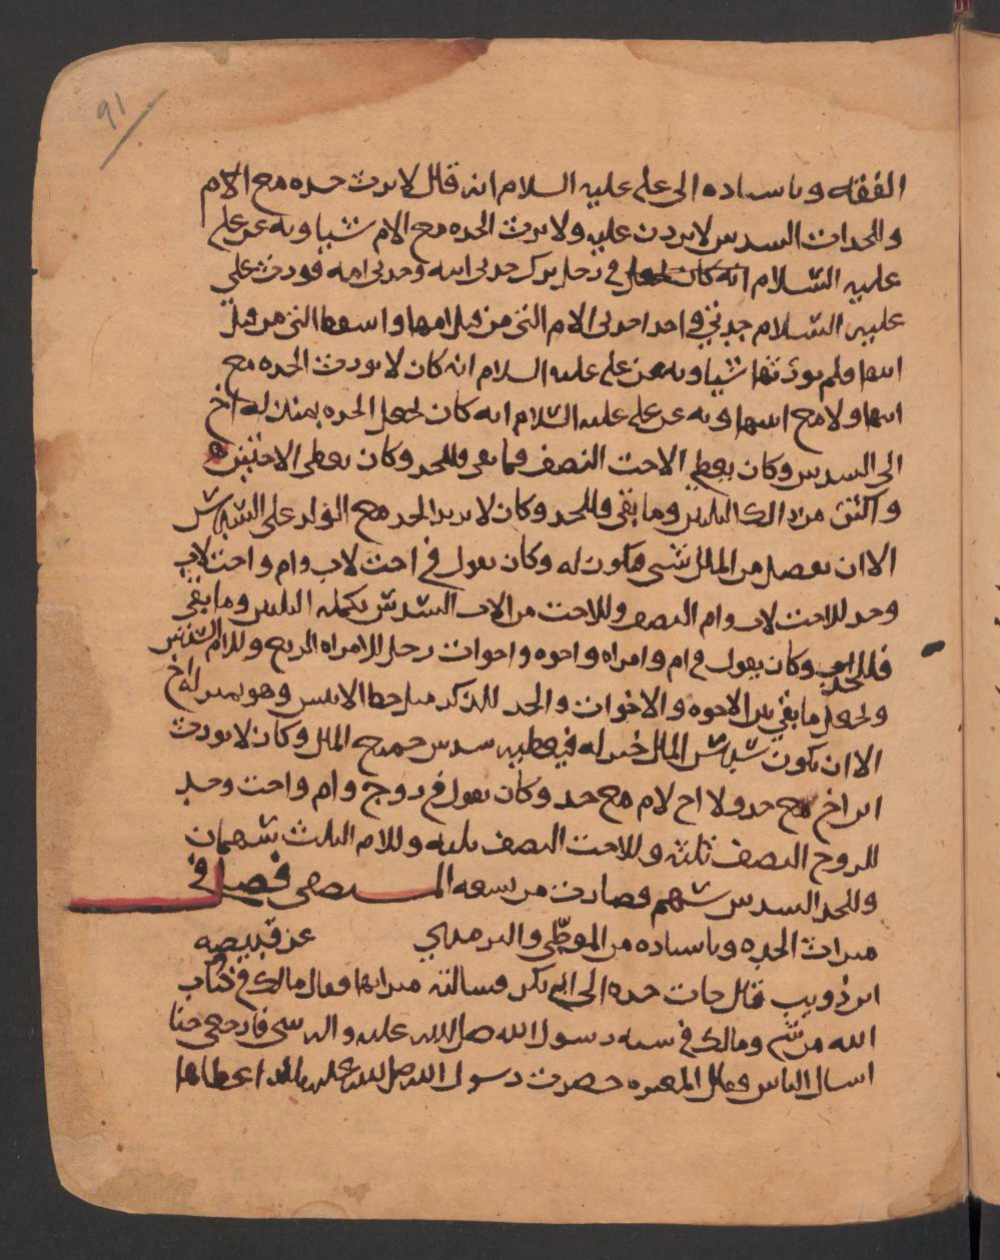 91
الفقه وباسناده الى علي عليه السلام انه قال لا يرث جده مع الام
والجدات السدس لا يزدن عليه ولا يرث الجده مع الام شيا وبه عن علي
عليه السلام انه كان في رجل ترك جدتي ابيه وجدتي امه فورث علي
عليه السلام جدتي واحدا جدتي الام التي من قبل امها واسقط التي من قبل
ابيها ولم يورثها شيا وبه عن علي عليه السلام انه كان لا يورث الجده مع
ابنها ولا مع ابنتها وبه عن علي عليه السلام انه كان يجعل الجد بمنزله اخ
الى السدس وكان يعطي الاخت النصف وما بقي فللجد وكان يعطي الاختين
واكثر من ذالك الثلثين وما بقي فللجد وكان لا يزيد الجد مع الولد على السدس
الا ان يفضل من المال شي فيكون له وكان يقول في اخت لاب وام واخت لاب
وجد للاخت لاب وام النصف وللاخت من الاب السدس تكمله الثلثين وما بقي
فللجد وكان يقول في ام وامراه واخوه واخوات وجد للامراه الربع وللام السدس
ويجعل ما بقي بين الاخوه والاخوات والجد للذكر مثل حظ الانثيين وهو بمنزله اخ
الا ان يكون سدس المال خير له فيعطيه سدس جميع المال وكان لا يورث
ابن اخ مع جد ولا اخ لام مع جد وكان يقول في زوج وام واخت وجد
للزوج النصف ثلثه وللاخت النصف ثلثه وللام الثلث سهمان
وللجد السدس سهم فصارت من تسعه فصل في
ميراث الجده وباسناده من الموطى والترمذي عن قبيصه
ابن ذويب قال جات جده الى ابي بكر فسالته ميراثها فقال مالك في كتاب
الله من شي ومالك في سنه رسول الله صلى الله عليه واله شي فارجعي حتا
اسال الناس فقال المغيره حضرت رسول الله صلى الله عليه واله اعطاها